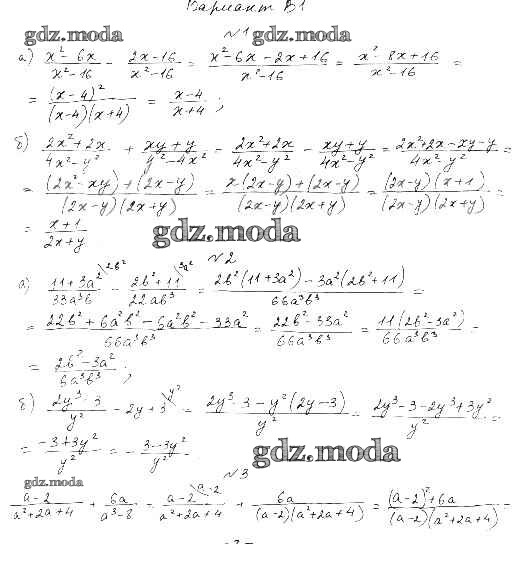 Вариант В1
gdz.moda
№1
а) (x² - 6x)/(x² - 16) - (2x - 16)/(x² - 16) = (x² - 6x - 2x + 16)/(x² - 16) = (x² - 8x + 16)/(x² - 16) =
= (x - 4)²/((x - 4)(x + 4)) = (x - 4)/(x + 4) ;
б) (2x² + 2x)/(4x² - y²) + (xy + y)/(y² - 4x²) = (2x² + 2x)/(4x² - y²) - (xy + y)/(4x² - y²) = (2x² + 2x - xy - y)/(4x² - y²) =
= ((2x² - xy) + (2x - y))/((2x - y)(2x + y)) = (x(2x - y) + (2x - y))/((2x - y)(2x + y)) = ((2x - y)(x + 1))/((2x - y)(2x + y)) =
= (x + 1)/(2x + y)
gdz.moda
№2
а) (11 + 3a²)/(33a³b) \2b² - (2b² + 11)/(22ab³) \3a² = (2b²(11 + 3a²) - 3a²(2b² + 11))/(66a³b³) =
= (22b² + 6a²b² - 6a²b² - 33a²)/(66a³b³) = (22b² - 33a²)/(66a³b³) = (11(2b² - 3a²))/(66a³b³) =
= (2b² - 3a²)/(6a³b³) ;
б) (2y³ - 3)/y² - 2y + 3 \y² = (2y³ - 3 - y²(2y - 3))/y² = (2y³ - 3 - 2y³ + 3y²)/y² =
= (-3 + 3y²)/y² = - (3 - 3y²)/y²
gdz.moda
№3
gdz.moda
(a - 2)/(a² + 2a + 4) + 6a/(a³ - 8) = (a - 2)/(a² + 2a + 4) \a - 2 + 6a/((a - 2)(a² + 2a + 4)) = ((a - 2)² + 6a)/((a - 2)(a² + 2a + 4)) =